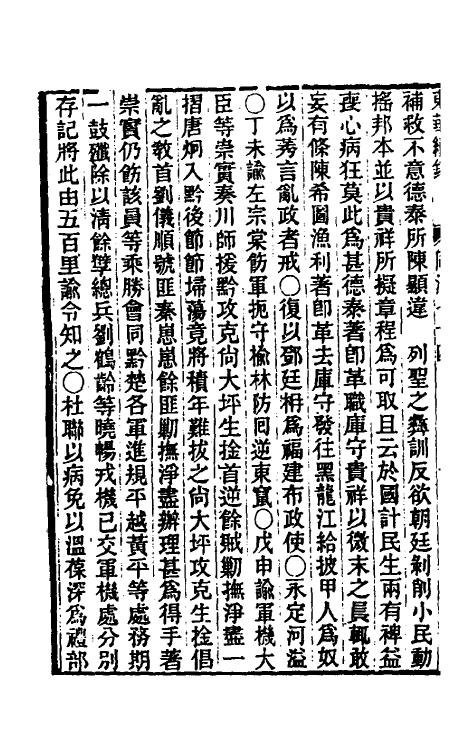 補救不意德泰所陳顯違　列聖之彝訓反欲朝廷剝削小民動
搖邦本並以貴祥所擬章程為可取且云於國計民生兩有裨益
喪心病狂莫此為甚德泰著即革職庫守貴祥以微末之員輒敢
妄有條陳希圖漁利著即革去庫守發往黑龍江給披甲人為奴
以為莠言亂政者戒○復以鄧廷枏為福建布政使○永定河溢
○丁未諭左宗棠飭軍扼守榆林防囘逆東竄○戊申諭軍機大
臣等崇實奏川師援黔攻克尙大坪生捦首逆餘賊勦撫淨盡一
摺唐炯入黔後節節埽蕩竟將積年難拔之尙大坪攻克生捦倡
亂之敎首劉儀順號匪秦崽崽餘匪勦撫淨盡辦理甚為得手著
崇實仍飭該員等乘勝會同黔楚各軍進規平越黃平等處務期
一鼓殲除以淸餘孽總兵劉鶴齡等曉暢戎機已交軍機處分別
存記將此由五百里諭令知之○杜聯以病免以溫葆深為禮部